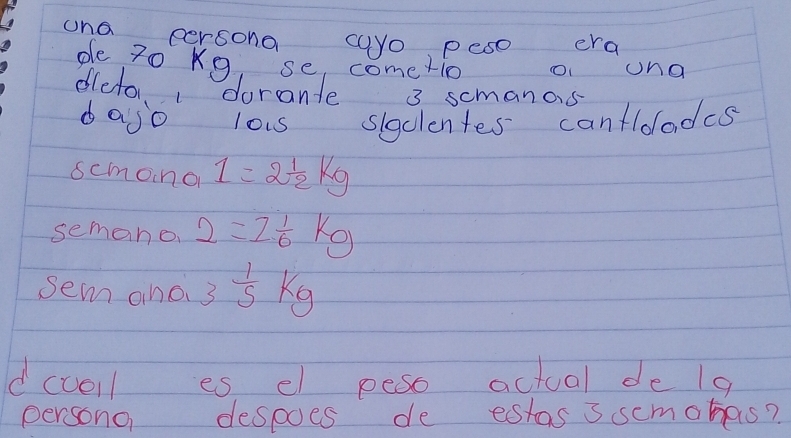 una persona cuyo peso era
de 70 Kg se cometio a una
dieta, durante 3 semanas
bajo las siguientes cantidades
semana 1 = 2 1/2 Kg
semana 2 = 1 1/6 Kg
semana 3 1/5 Kg
d cual es el peso actual de la
persona despues de estas 3 semanas?